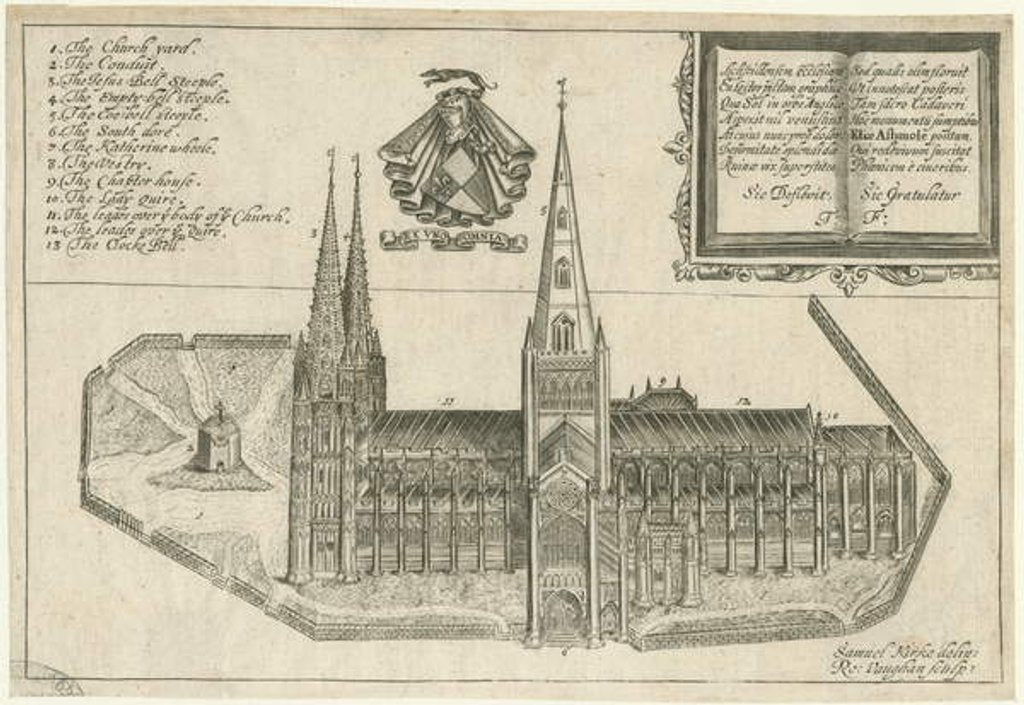 1. The Church yard.
2. The Conduit.
3. The Jesus Bell Steeple.
4. The Empty bell steeple.
5. The Coe bell steeple.
6. The South dore.
7. The Katherine wheele.
8. The Vestry.
9. The Chapter house.
10. The Lady Quire.
11. The leades over yͤ body of yͤ Church.
12. The leades over yͤ Quire.
13 The Clocke Bell
EX VNO OMNIA
Lichfildensem ecclesiam
En Lector pictam
Qua Sol in orbe Anglico
Aspexit nil venustius
At cujus nunc
Deformitate
Ruinæ vix superstitem
Sic Deflevit.
Sed qualis olim floruit
Ut innotescat posteris
Tam sacro Cadaveri
Hoc monumentũ sumptibus
Eliæ Ashmole positum.
Qui redivivum suscitat
Phœnicem è cineribus.
Sic Gratulatur
T: F:
3
4
5
11
9
12
10
6
Samuel Kirke delin:
Ro: Vaughan sculp: